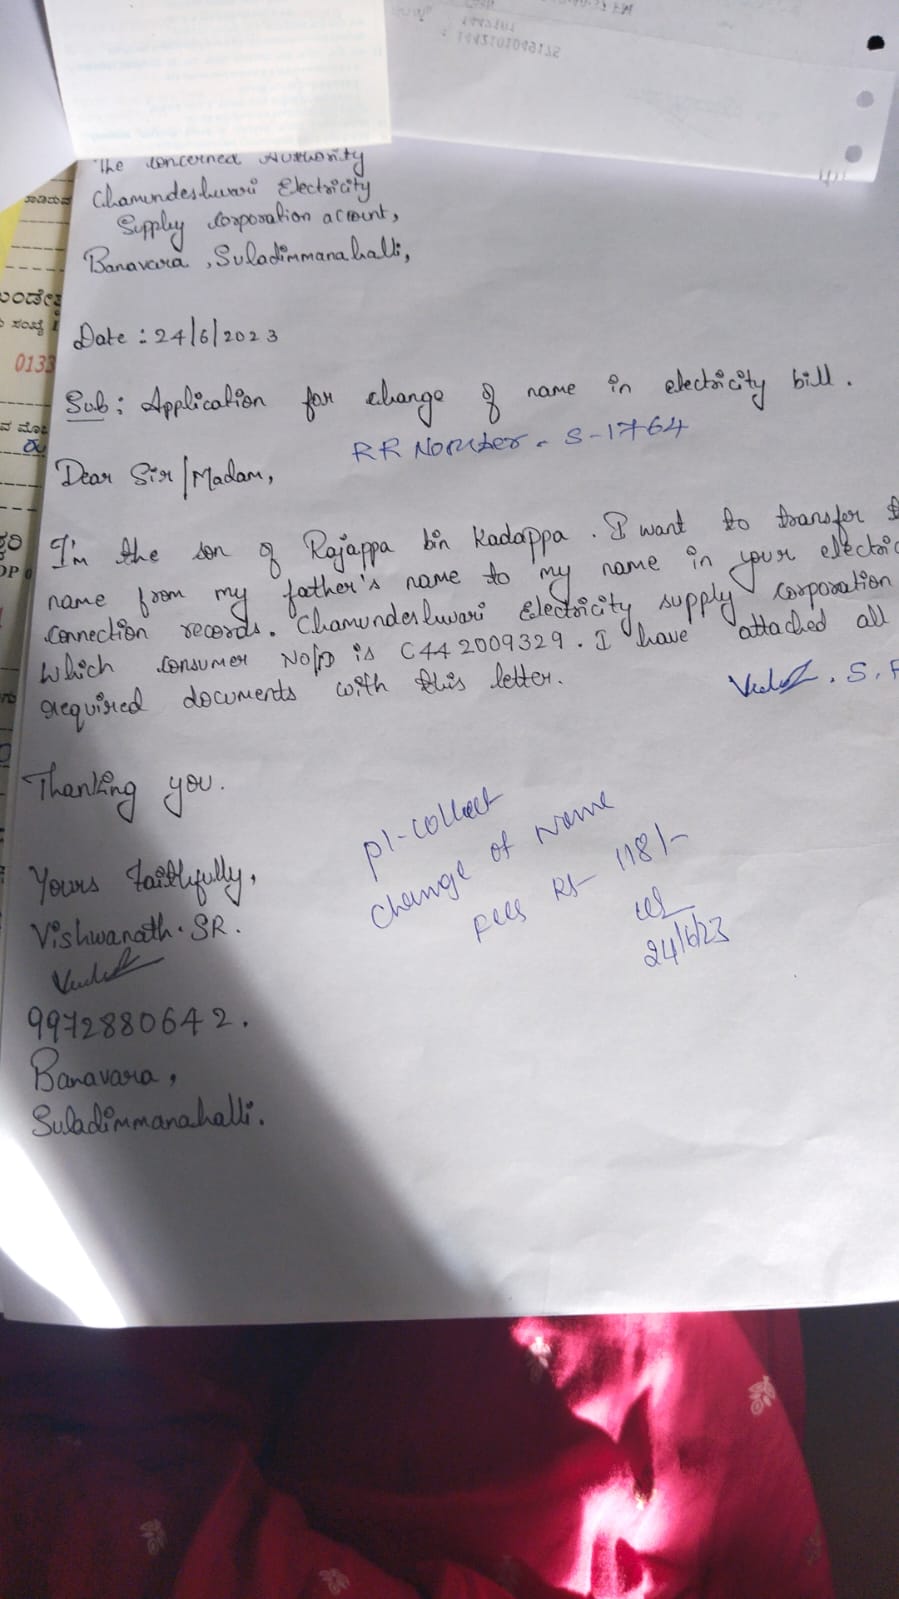 1442101049175
The concerned Authority
Chamundeshwari Electricity
Supply corporation account,
Banavara, Suladimmanahalli,
0133
Date : 24/6/2023
Sub : Application for change of name in electricity bill.
RR Number - S-1764
Dear Sir/Madam,
I'm the son of Rajappa bin Kadappa. I want to transfer
name from my father's name to my name in your electric
connection records. Chamundeshwari Electricity supply corporation
which consumer No/ID is C442009329. I have attached all
required documents with this letter.
Thanking you.
pl-collect
change of Name
fees Rs- 118/-
24/6/23
Yours faithfully,
Vishwanath.SR.
9972880642.
Banavara,
Suladimmanahalli.